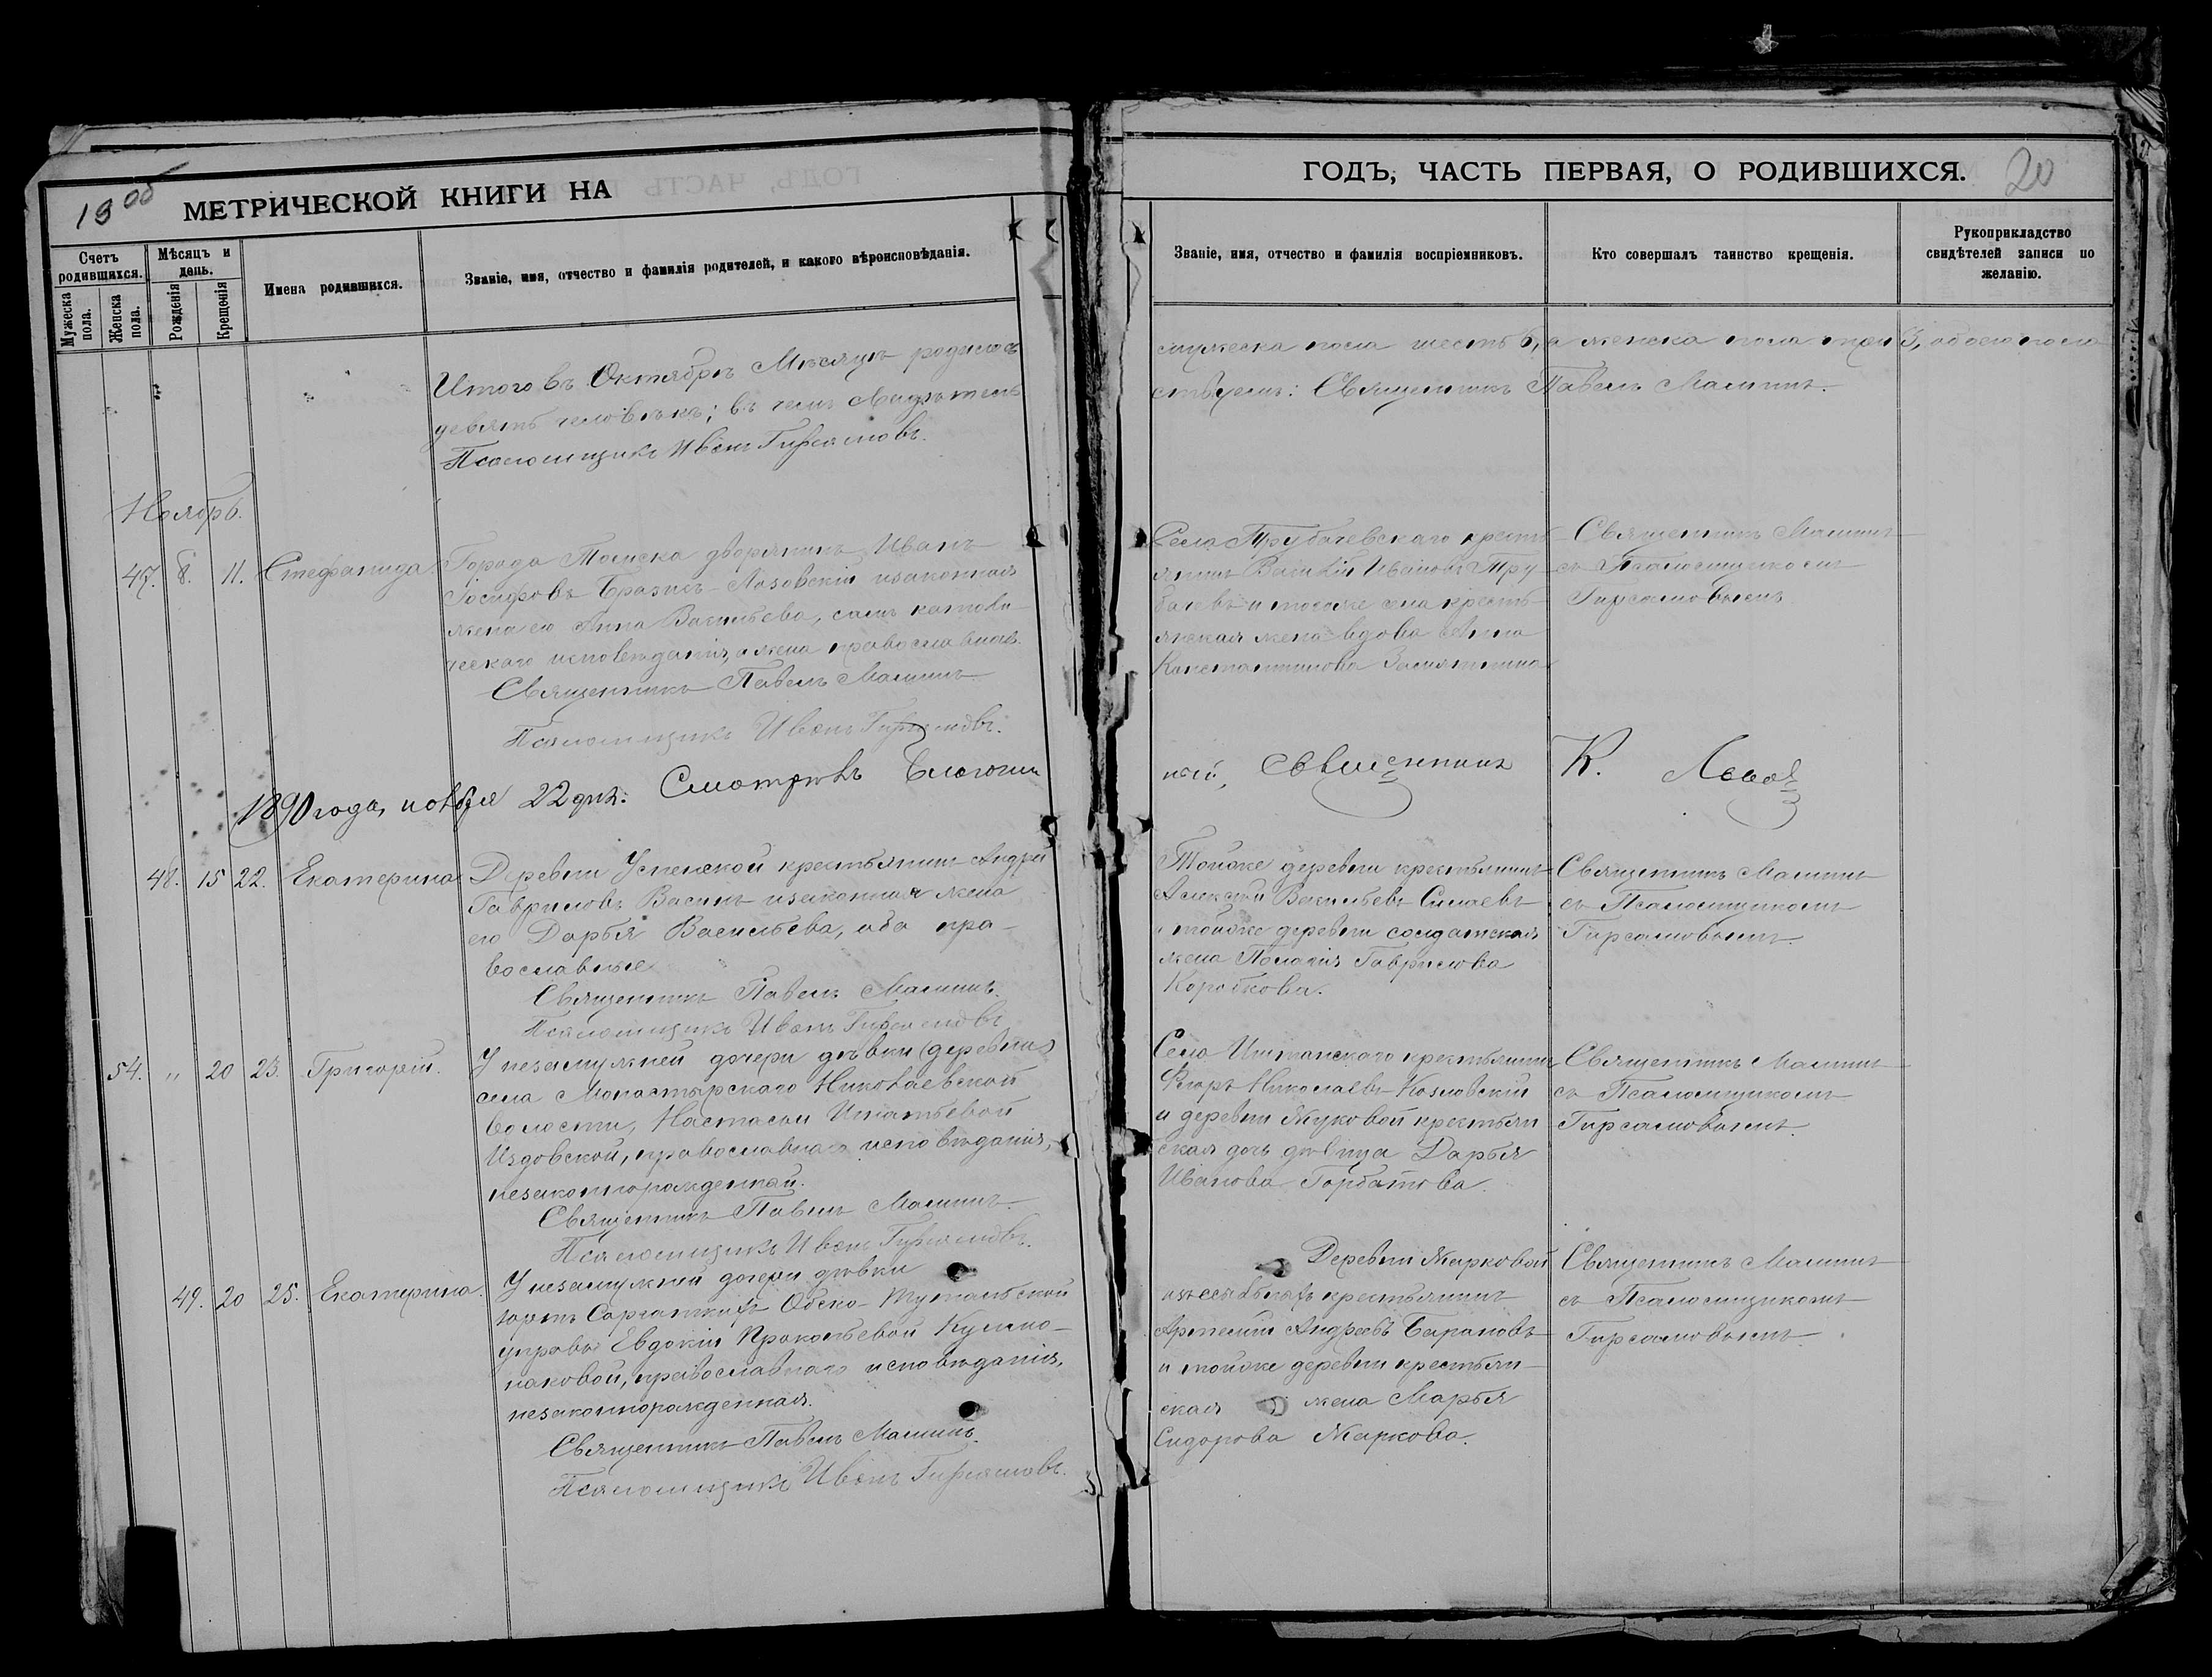 1900 МЕТРИЧЕСКОЙ КНИГИ НА
ГОДЪ, ЧАСТЬ ПЕРВАЯ, О РОДИВШИХСЯ. 20
Счетъ родившихся.
Мужеска пола.
Женска пола.
Мѣсяцъ и день.
Рожденія
Крещенія
Имена родившихся.
Званіе, имя, отчество и фамилія родителей, и какого вѣроисповѣданія.
Званіе, имя, отчество и фамилія воспріемниковъ.
Кто совершалъ таинство крещенія.
Рукоприкладство свидѣтелей записи по желанію.
Итого въ Октябрѣ Мѣсяцѣ родилось
мужеска пола шесть 6, а женска пола три 3, обоего пола
девять человѣкъ; въ чемъ свидѣтель
ствуемъ: Священникъ Павелъ Малинъ.
Псаломщикъ Иванъ
Ноябрь.
47. 8. 11. Стефанида.
Города Томска дворянинъ Иванъ
Іосифовъ Лозовскій и законная
жена его Анна Васильева, самъ католи-
ческаго исповѣданія, а жена православнаго.
Священникъ Павелъ Малинъ
Псаломщикъ Иванъ
Села Трубачевскаго кресть-
янинъ Василій Ивановъ Тру-
бачевъ и того же села кресть-
янская жена вдова Анна
Константинова Замятнина
Священникъ Малинъ
съ Псаломщикомъ
1890 года, ноября 22 дня. Смотрѣлъ Благочин
ный, Священникъ К.
48. 15 22. Екатерина
Деревни Успенской крестьянинъ Андрей
Гавриловъ Васинъ и законная жена
его Дарья Васильева, оба пра-
вославные
Священникъ Павелъ Малинъ.
Псаломщикъ Иванъ
Тойже деревни крестьянинъ
Алексѣй Васильевъ Силаевъ
и тойже деревни солдатская
жена Пелагія Гаврилова
Коробкова.
Священникъ Малинъ
съ Псаломщикомъ
54. „ 20 23. Григорій.
У незамужней дочери дѣвки (деревни)
села Монастырскаго Николаевской
волости, Настасьи Игнатьевой
православнаго исповѣданія,
незаконнорожденный.
Священникъ Павелъ Малинъ.
Псаломщикъ Иванъ
Села Иштанскаго крестьянинъ
Егоръ Николаевъ Козловскій
и деревни Жуковой крестьян
ская дочь дѣвица Дарья
Иванова Горбатова.
Священникъ Малинъ
съ Псаломщикомъ
49. 20 25. Екатерина.
У незамужней дочери дѣвки
юртъ Саргатскихъ Обско-Тутальской
управы Евдокіи Прокопьевой
православнаго исповѣданія,
незаконнорожденная.
Священникъ Павелъ Малинъ.
Псаломщикъ Иванъ
Деревни Жарковой
изъ ссыльныхъ крестьянинъ
Артемій Андреевъ Барановъ
и тойже деревни крестьян-
ская жена Марья
Сидорова Жаркова.
Священникъ Малинъ
съ Псаломщикомъ